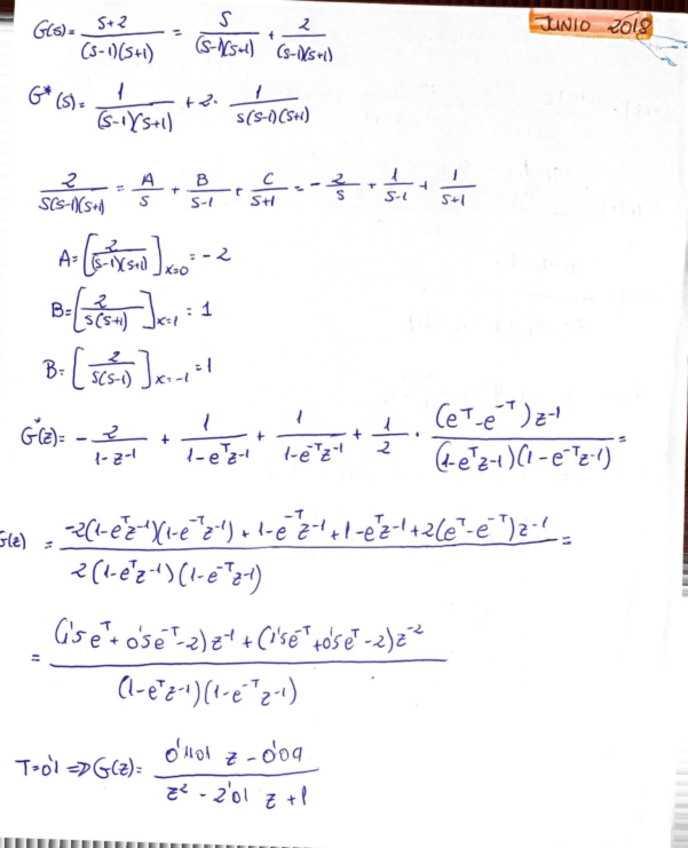 JUNIO 2018
G(s)= (s+2)/((s-1)(s+1)) = s/((s-1)(s+1)) + 2/((s-1)(s+1))
G*(s)= 1/((s-1)(s+1)) + 2· 1/(s(s-1)(s+1))
2/(s(s-1)(s+1)) = A/s + B/(s-1) + C/(s+1) = - 2/s + 1/(s-1) + 1/(s+1)
A= [2/((s-1)(s+1))]x=0 = -2
B= [2/(s(s+1))]x=1 = 1
B= [2/(s(s-1))]x=-1 = 1
G*(z)= - 2/(1-z⁻¹) + 1/(1-e^T z⁻¹) + 1/(1-e^-T z⁻¹) + 1/2 · ((e^T-e^-T)z⁻¹)/((1-e^T z⁻¹)(1-e^-T z⁻¹)) =
G(z) = (-2(1-e^T z⁻¹)(1-e^-T z⁻¹) + 1-e^-T z⁻¹ + 1-e^T z⁻¹ + 2(e^T-e^-T)z⁻¹)/(2(1-e^T z⁻¹)(1-e^-T z⁻¹)) =
= ((1'5e^T + 0'5e^-T - 2)z⁻¹ + (1'5e^-T + 0'5e^T - 2)z⁻²)/((1-e^T z⁻¹)(1-e^-T z⁻¹))
T=0'1 ⇒ G(z)= (0'1101 z - 0'09)/(z² - 2'01 z + 1)